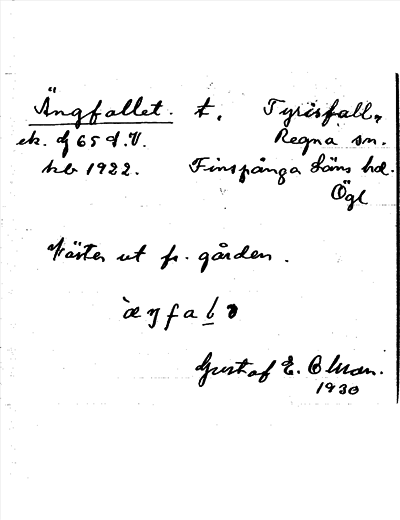 Ängfallet. t. Tyrisfall,
ek. bl 65 d. V. Regna sn.
hb 1922. Finspånga läns hd.
Ögl
Väster ut fr. gården.
Gustaf E. Olsson.
1930